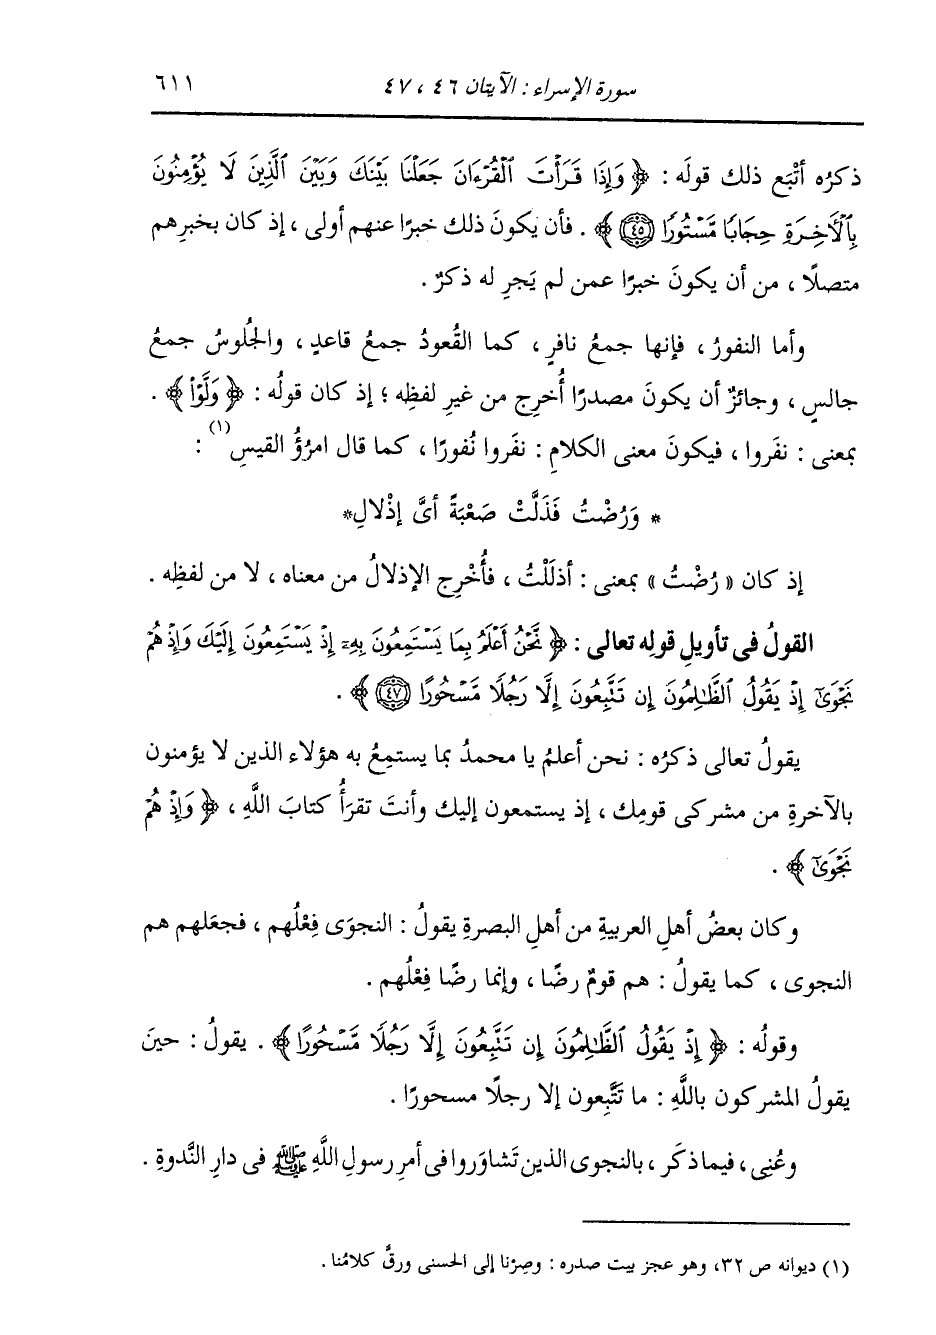 سورة الإسراء : الآيتان ٤٦ ، ٤٧ ٦١١
ذكرُه أتْبَع ذلك قولَه : ﴿ وَإِذَا قَرَأْتَ ٱلْقُرْءَانَ جَعَلْنَا بَيْنَكَ وَبَيْنَ ٱلَّذِينَ لَا يُؤْمِنُونَ
بِٱلْآخِرَةِ حِجَابًا مَّسْتُورًا ﴿٤٥﴾ ﴾ . فأن يكونَ ذلك خبرًا عنهم أولى ، إذ كان بخبرِهم
متصلًا ، من أن يكونَ خبرًا عمن لم يَجرِ له ذكرٌ .
وأما النفورُ ، فإنها جمعُ نافرٍ ، كما القُعودُ جمعُ قاعدٍ ، والجُلوسُ جمعُ
جالسٍ ، وجائزٌ أن يكونَ مصدرًا أُخرِج من غيرِ لفظِه ؛ إذ كان قولُه : ﴿ وَلَّوْا۟ ﴾ .
بمعنى : نفَروا ، فيكونَ معنى الكلامِ : نفَروا نُفورًا ، كما قال امرُؤُ القيسِ (١) :
* وَرُضْتُ فَذَلَّتْ صَعْبَةً أىَّ إذْلالِ *
إذ كان « رُضْتُ » بمعنى : أذلَلْتُ ، فأُخْرِج الإذلالُ من معناه ، لا من لفظِه .
القولُ فى تأويلِ قولِه تعالى : ﴿ نَّحْنُ أَعْلَمُ بِمَا يَسْتَمِعُونَ بِهِۦٓ إِذْ يَسْتَمِعُونَ إِلَيْكَ وَإِذْ هُمْ
نَجْوَىٰٓ إِذْ يَقُولُ ٱلظَّٰلِمُونَ إِن تَتَّبِعُونَ إِلَّا رَجُلًا مَّسْحُورًا ﴿٤٧﴾ ﴾ .
يقولُ تعالى ذكرُه : نحن أعلمُ يا محمدُ بما يستمِعُ به هؤلاء الذين لا يؤمنون
بالآخرةِ من مشركى قومِك ، إذ يستمعون إليك وأنتَ تقرَأُ كتابَ اللَّهِ ، ﴿ وَإِذْ هُمْ
نَجْوَىٰٓ ﴾ .
وكان بعضُ أهلِ العربيةِ من أهلِ البصرةِ يقولُ : النجوَى فِعْلُهم ، فجعَلهم هم
النجوى ، كما يقولُ : هم قومٌ رضًا ، وإنما رضًا فِعْلُهم .
وقولُه : ﴿ إِذْ يَقُولُ ٱلظَّٰلِمُونَ إِن تَتَّبِعُونَ إِلَّا رَجُلًا مَّسْحُورًا ﴾ . يقولُ : حينَ
يقولُ المشركون باللَّهِ : ما تَتَّبِعون إلا رجلًا مسحورًا .
وعُنِى ، فيما ذكَر ، بالنجوى الذين تَشاوَروا فى أمرِ رسولِ اللَّهِ ﷺ فى دارِ النَّدوةِ .
(١) ديوانه ص ٣٢، وهو عجز بيت صدره : وصِرْنا إلى الحسنى ورقَّ كلامُنا .